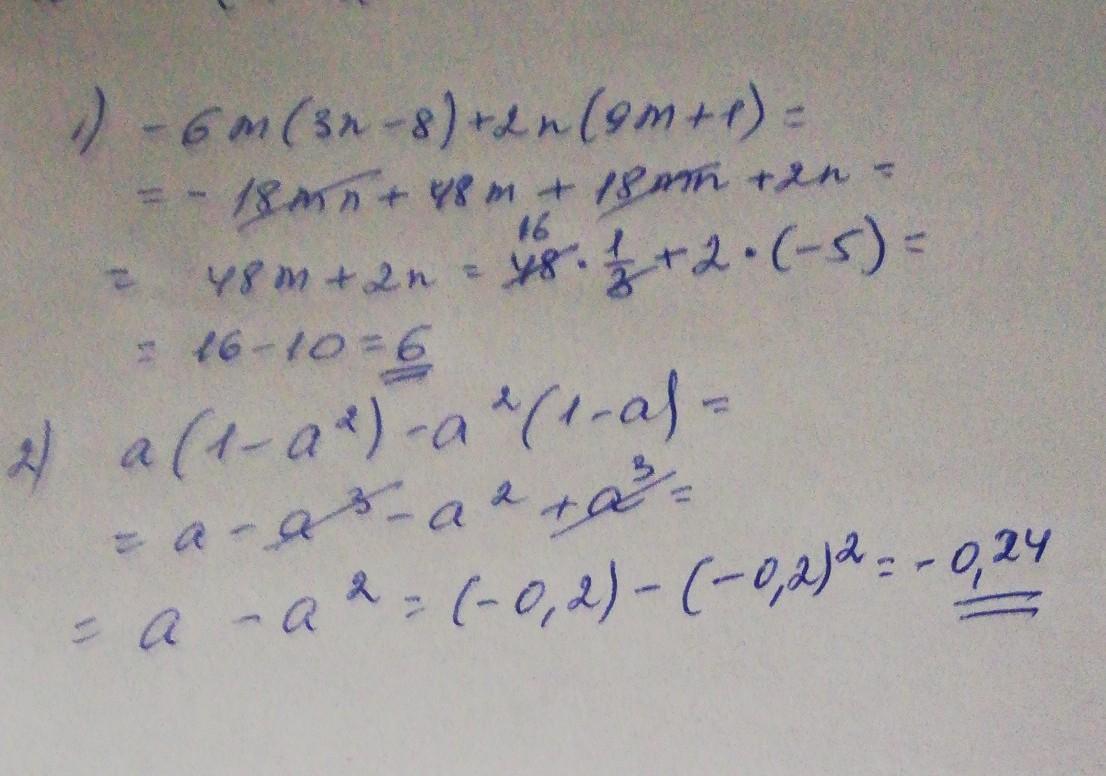 1) -6m(3n-8)+2n(9m+1)=
= -18mn+48m+18mn+2n=
= 48m+2n=48·1/3+2·(-5)=
16
= 16-10=6
2) a(1-a²)-a²(1-a)=
= a-a³-a²+a³=
= a-a²=(-0,2)-(-0,2)²=-0,24